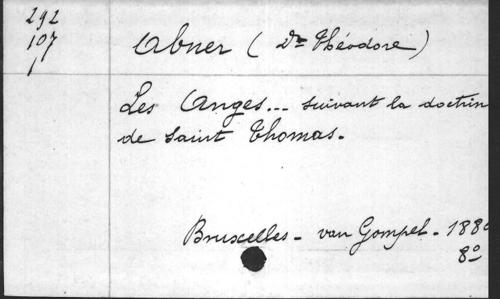 292
107
1
Abner (Dr Théodore)
Les Anges... suivant la doctrin
de Saint Thomas.
Bruxelles - van Gompel - 188
8º